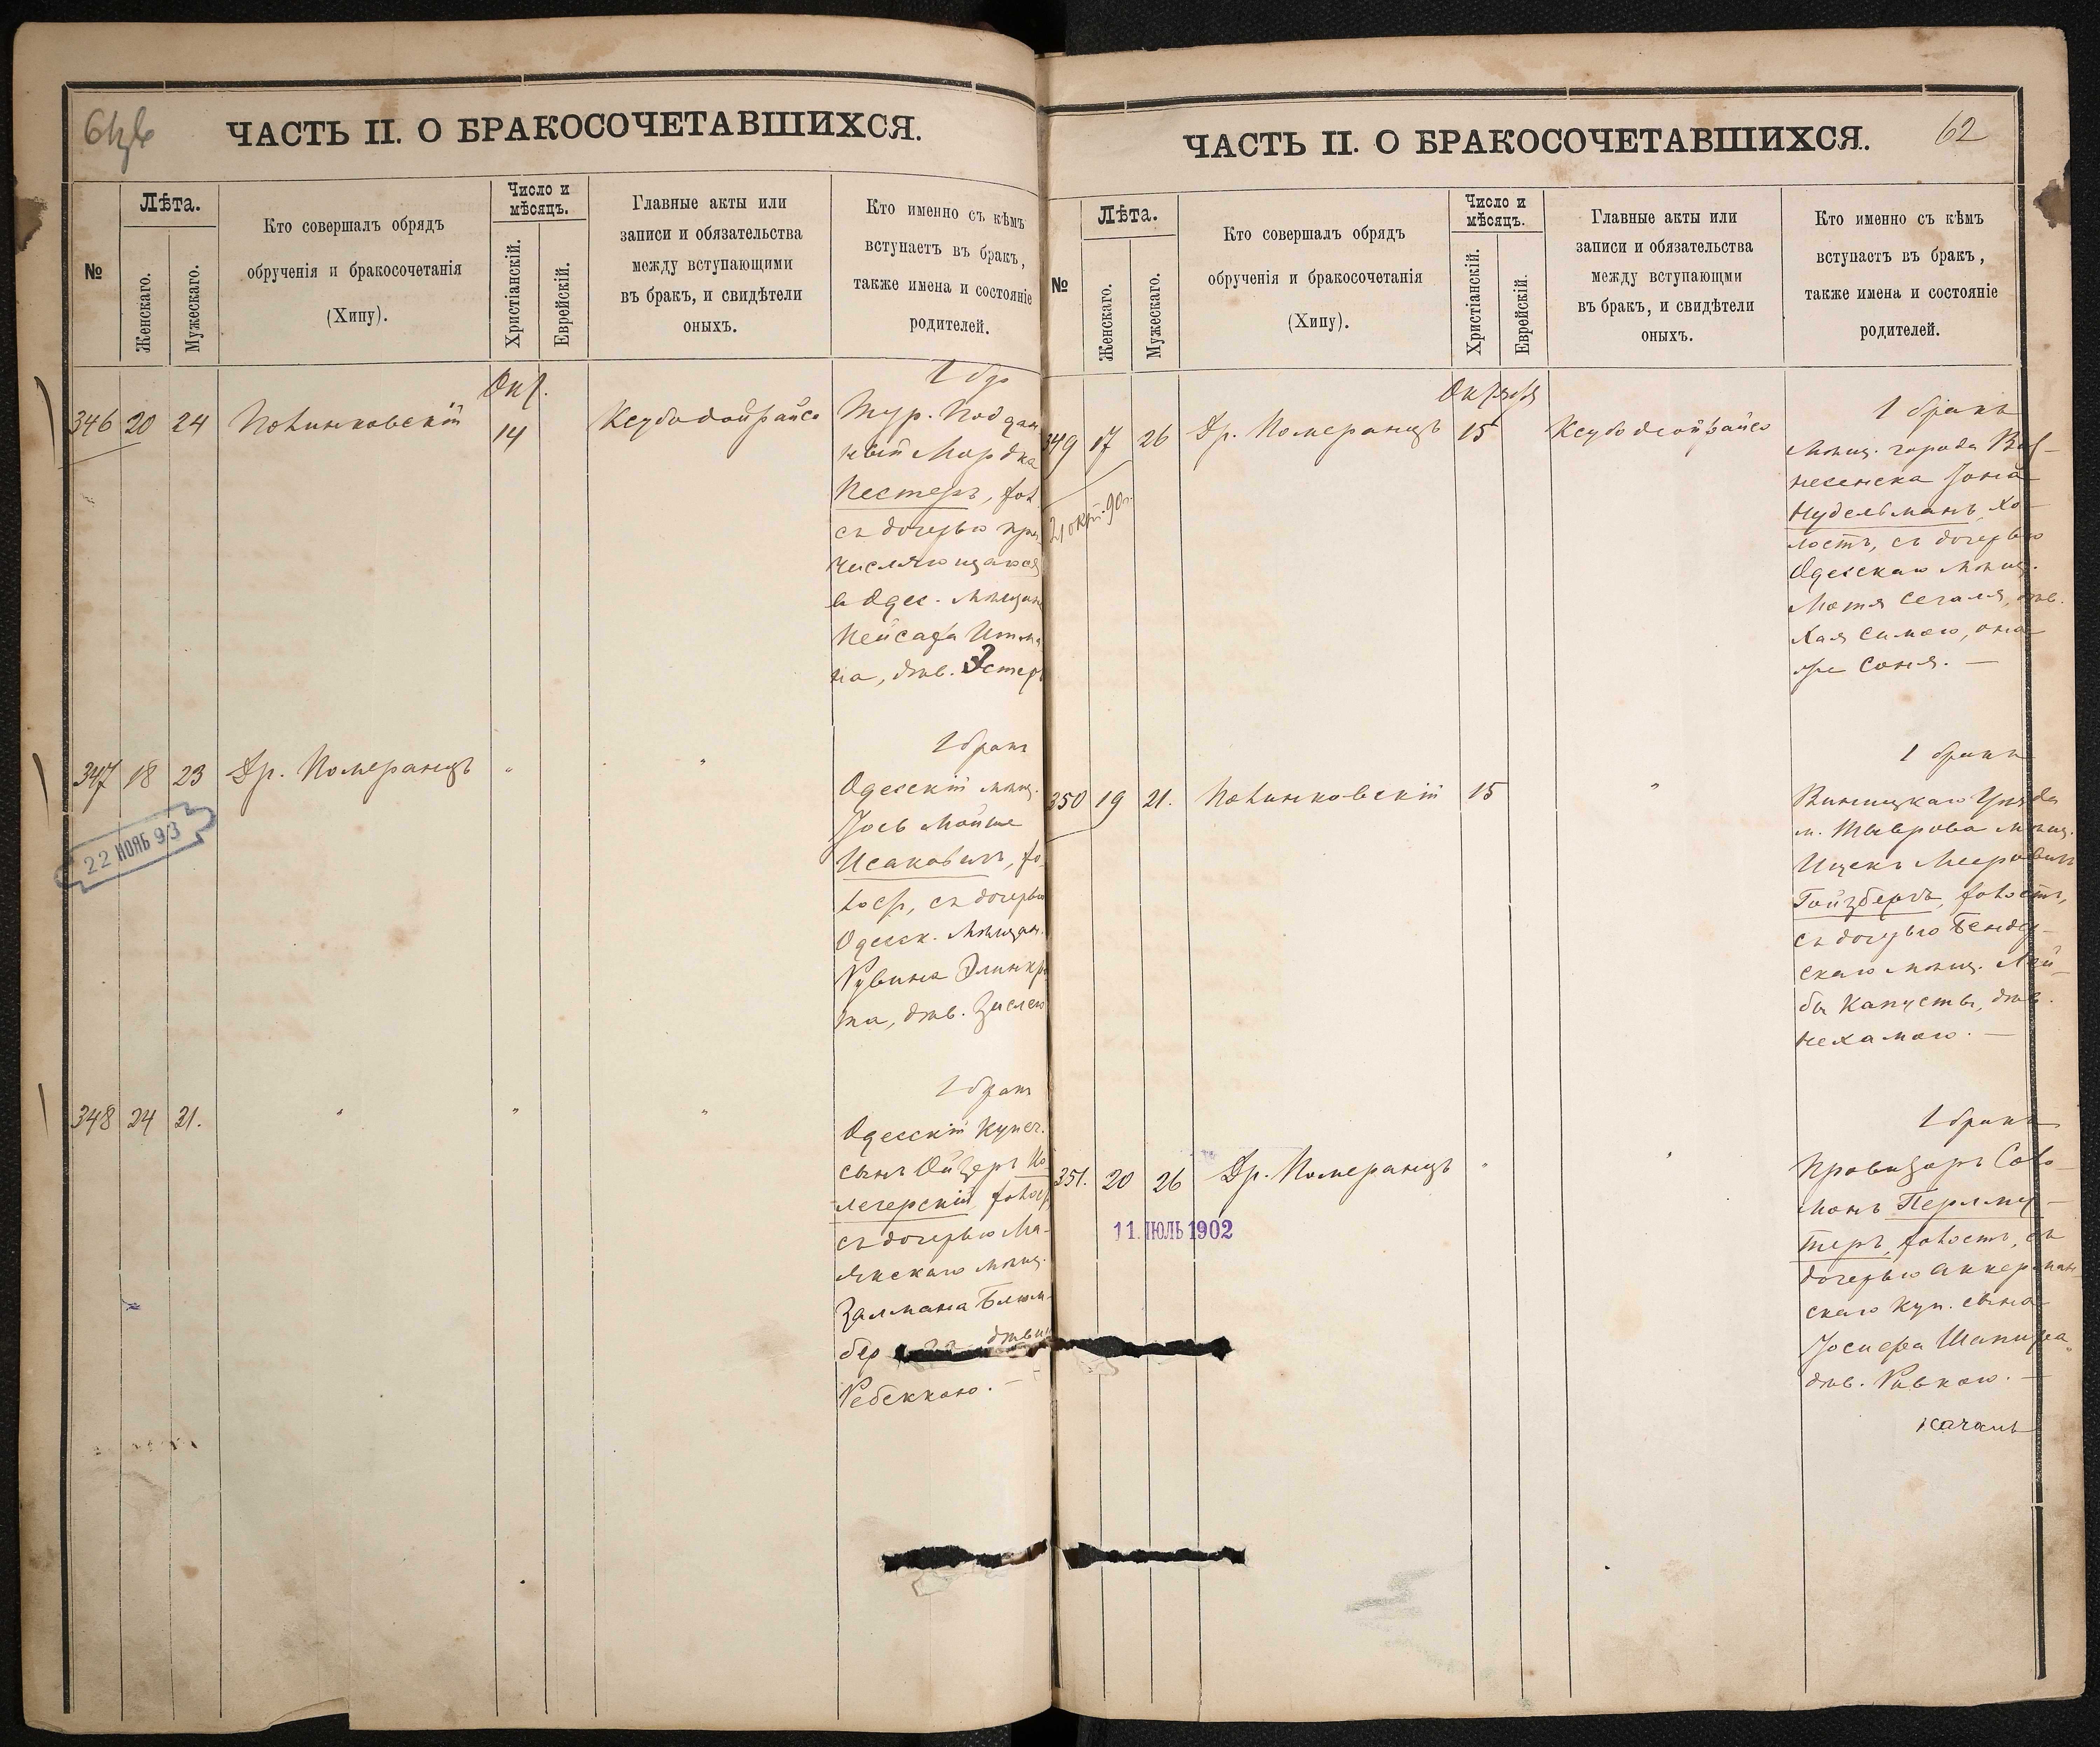 ЧАСТЬ II. О БРАКОСОЧЕТАВШИХСЯ.
№
Лѣта.
Женскаго.
Мужескаго.
Кто совершалъ обрядъ
обрученія и бракосочетанія
(Хипу).
Число и
мѣсяцъ.
Христіанскій.
Еврейскій.
Главные акты или
записи и обязательства
между вступающими
въ бракъ, и свидѣтели
оныхъ.
Кто именно съ кѣмъ
вступаетъ въ бракъ,
также имена и состояніе
родителей.
Окт.
346 20 24 14
1 бр
Тур. Поддан
ный Мордка
Нестеръ, хол.
съ дочерью при
числяющаюся
в Одес. мѣщан
Пейсаха Итма
на, дѣв. Эстер
347 18 23 Др. Померанцъ " "
1 бракъ
Одесскій мѣщ.
Іось Мойше
Исаковичъ, хо
лост, съ дочерью
Одесск. мѣщан.
Рувина Элинкр
та, дѣв. Зислею
22 НОЯБ 93
348 24 21. " " "
1 бракъ
Одесскій купеч.
сынъ Ойзеръ Ко
лечерскій холост
съ дочерью Ма-
якскаго мѣщ.
Залмана Блюм-
бер дѣвиц
Ребеккою. —
ЧАСТЬ II. О БРАКОСОЧЕТАВШИХСЯ.
62
№
Лѣта.
Женскаго.
Мужескаго.
Кто совершалъ обрядъ
обрученія и бракосочетанія
(Хипу).
Число и
мѣсяцъ.
Христіанскій.
Еврейскій.
Главные акты или
записи и обязательства
между вступающми
въ бракъ, и свидѣтели
оныхъ.
Кто именно съ кѣмъ
вступаетъ въ бракъ,
также имена и состояніе
родителей.
Октября
349 17 26 Др. Померанцъ 15
21 окт. 90 г.
1 бракъ
Мѣщ. города Воз-
несенска Іона
Нудельманъ, хо-
лостъ, съ дочерью
Одесскаго мѣщ.
Мотя Сегаля, дѣв.
Хая Симою, она
же Соня. —
350 19 21. 15 "
1 бракъ
Винницкаго Уѣзда
м. Тыврова мѣщ.
Ицекъ Мееровичъ
Гойзбергъ, холостъ,
съ дочерью Бендер-
скаго мѣщ. Лей-
бы Капусты, дѣв.
Нехамою. —
351. 20 26 Др. Померанцъ " "
11 ІЮЛЬ 1902
1 бракъ
Провизоръ Соло-
монъ Перлму-
теръ, холостъ, съ
дочерью Аккерман-
скаго куп. сына
Іосифа Шапира,
дѣв. Ривкою. —